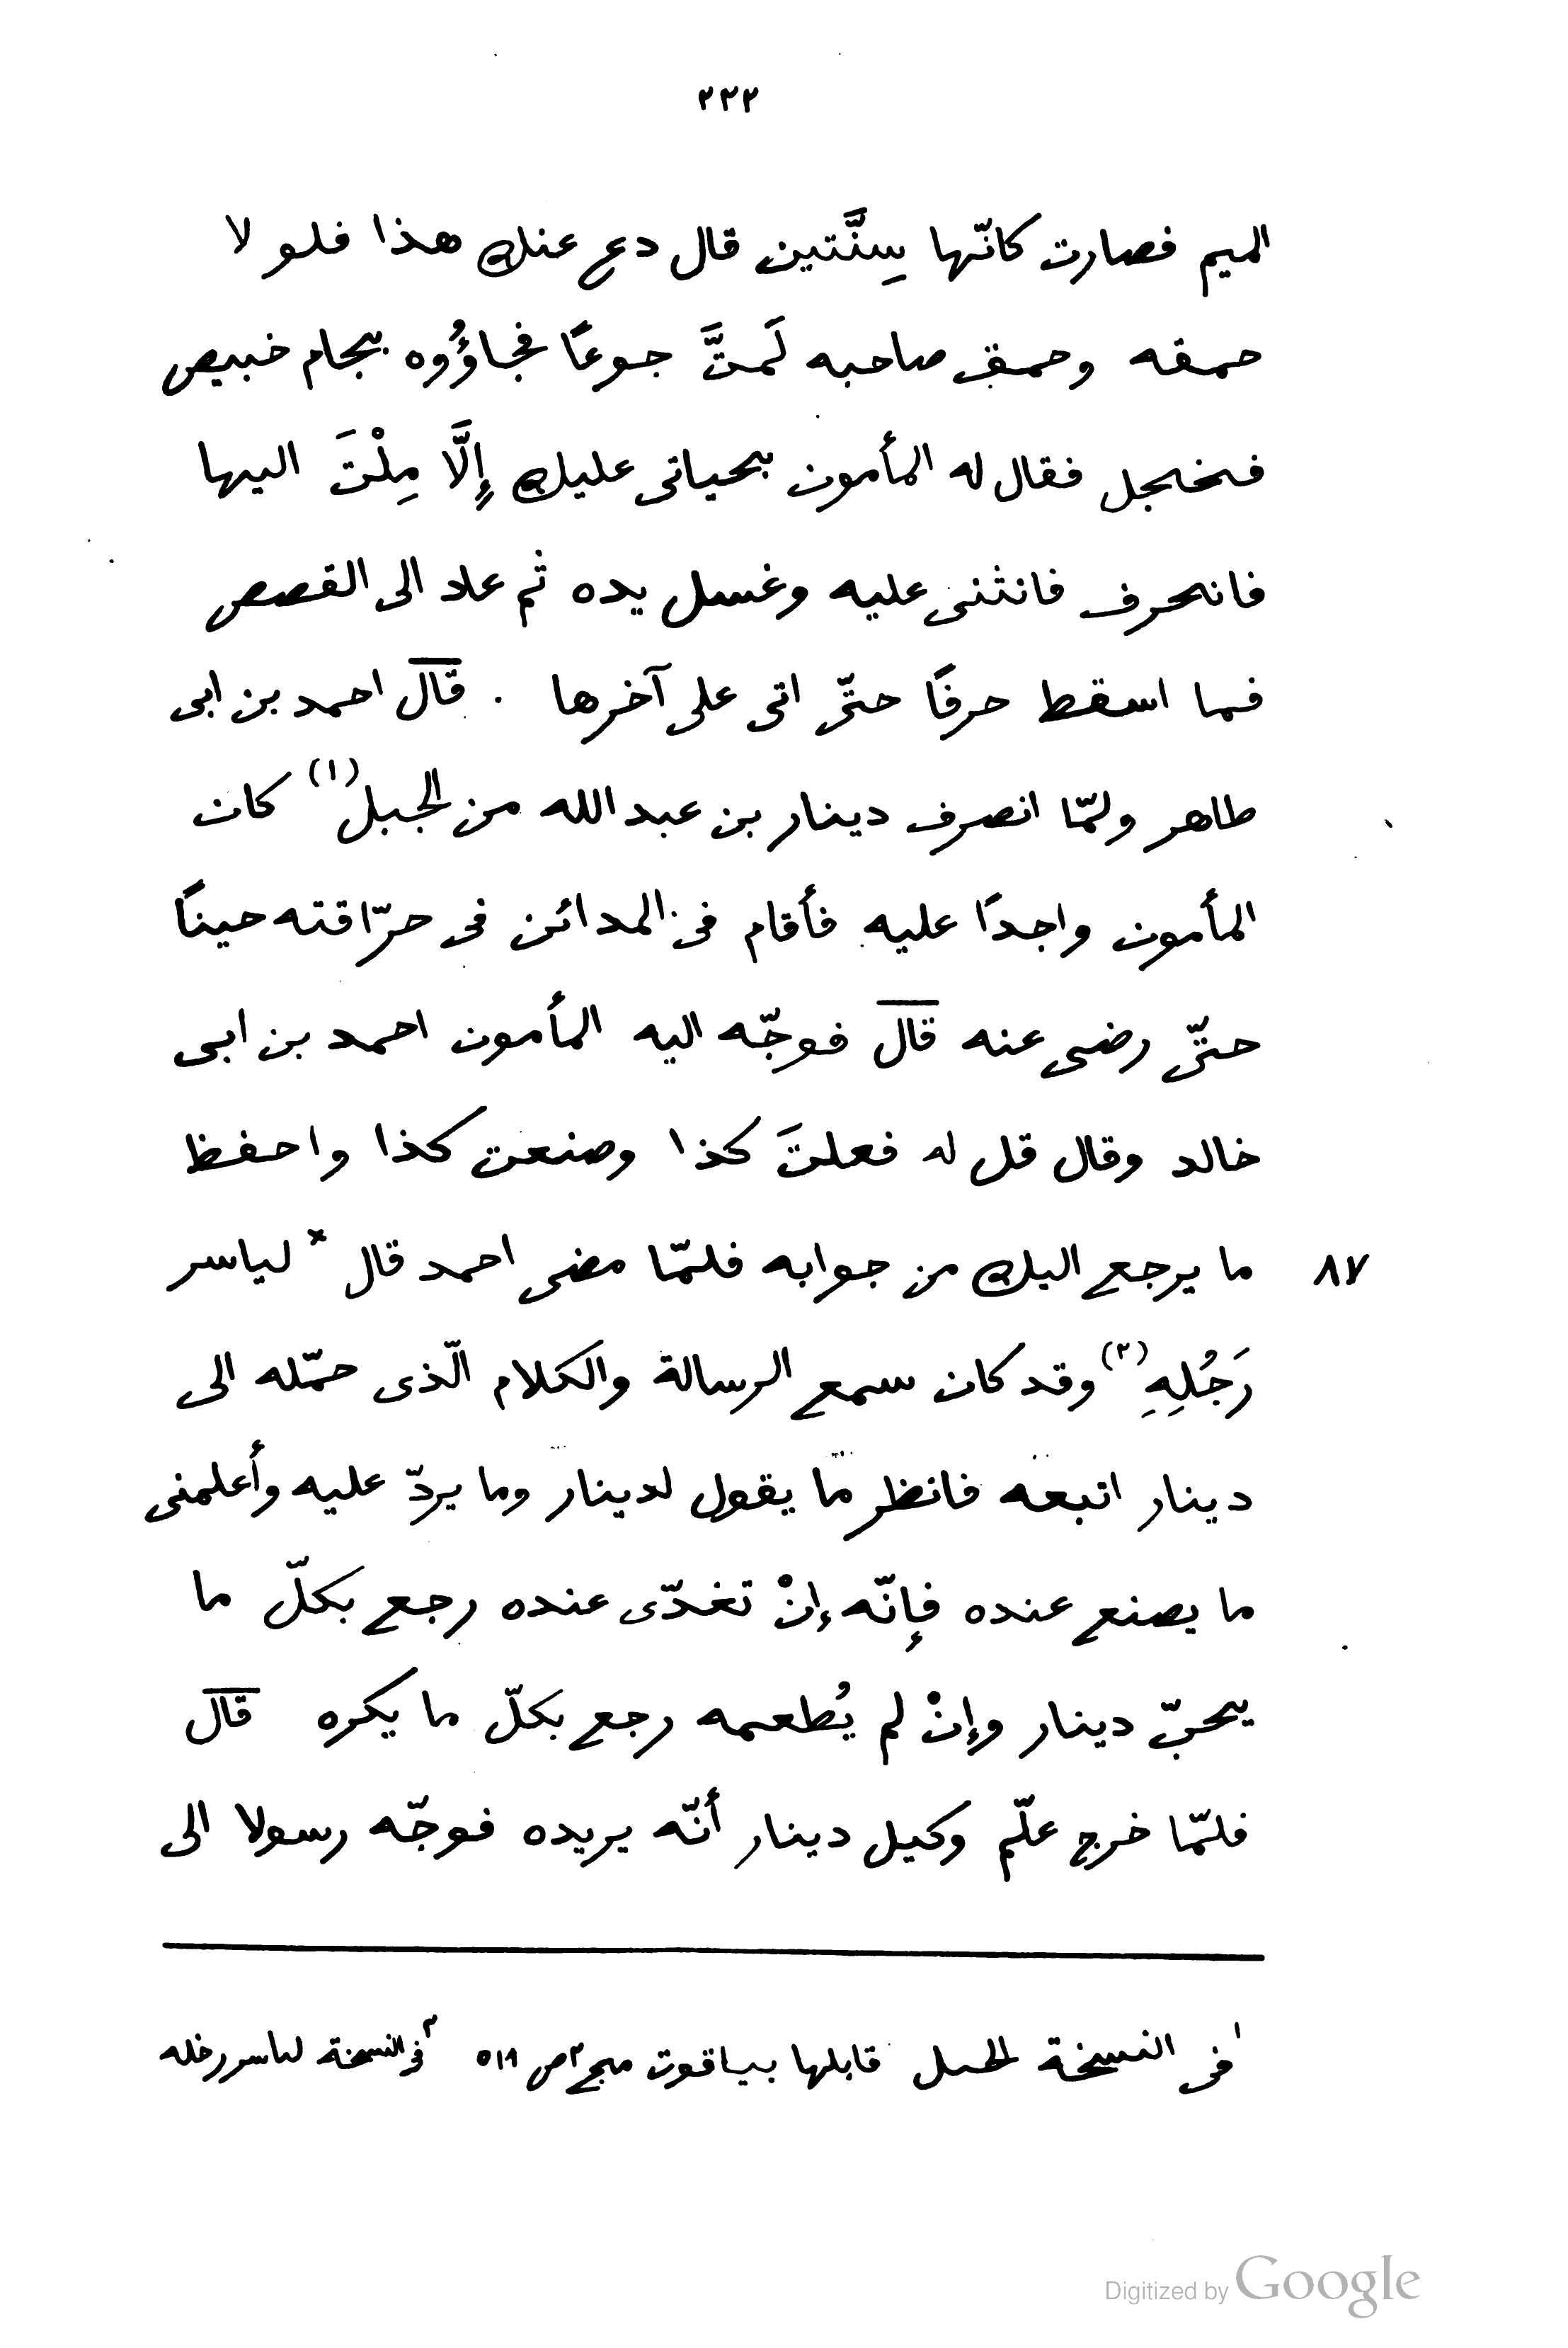 ٢٢٢
الميم فصارت كانّها سِنَّتين قال دع عنك هذا فلو لا
حمقه وحمق صاحبه لَمتَّ جوعًا فجاؤُوه بجام خبيص
فخجل فقال له المأمون بحياتى عليك إِلَّا مِلْتَ اليها
فانحرف فانثنى عليه وغسل يده ثم عاد الى القصص
فما اسقط حرفًا حتّى اتى على آخرها . قال احمد بن ابى
طاهر ولمّا انصرف دينار بن عبد الله من الجبل (١) كان
المأمون واجدًا عليه فأقام فى المدائن فى حرّاقته حينًا
حتّى رضى عنه قال فوجّه اليه المأمون احمد بن ابى
خالد وقال قل له فعلتَ كذا وصنعت كذا واحفظ
ما يرجع اليك من جوابه فلمّا مضى احمد قال * لياسر ٨٧
رَجُلِهِ (٢) وقد كان سمع الرسالة والكلام الّذى حمّله الى
دينار اتبعه فانظر ما يقول لدينار وما يردّ عليه وأعلمنى
ما يصنع عنده فإنّه إنْ تغدّى عنده رجع بكلّ ما
يحبّ دينار وإنْ لم يُطعمه رجع بكلّ ما يكره قال
فلمّا خرج علّم وكيل دينار أنّه يريده فوجّه رسولا الى
١ فى النسخة الحىل قابلها بياقوت مج ٢ ص ٥١٨ ٢ فى النسخة لىاسر رخله
Digitized by Google